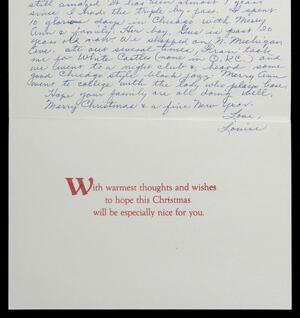 still amazed it has been almost 7 years
since I had the Triple By-Pass. I spent
10 glorious days in Chicago with Mary
Ann & family. Her boy, Gus is past 20
years old now. We shopped on N. Michigan
Ave. ate out several times, Fran took
me for White Castles (none in O, KC) and
we went to a night club & heard some
good Chicago style black jazz. Mary Ann
went to college with the lady who plays bass.
Hope your family are all doing well.
Merry Christmas & a fine New Year.
Love,
Louise
With warmest thoughts and wishes
to hope this Christmas
will be especially nice for you.